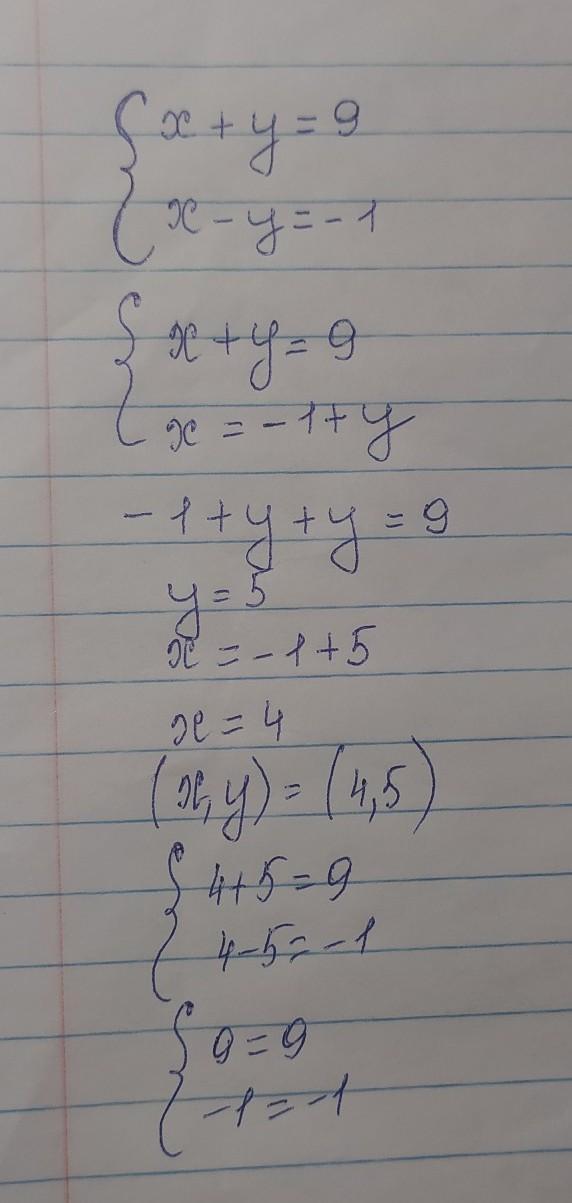 x + y = 9
x - y = -1
x + y = 9
x = -1 + y
-1 + y + y = 9
y = 5
x = -1 + 5
x = 4
(x, y) = (4,5)
4+5 = 9
4-5 = -1
9 = 9
-1 = -1